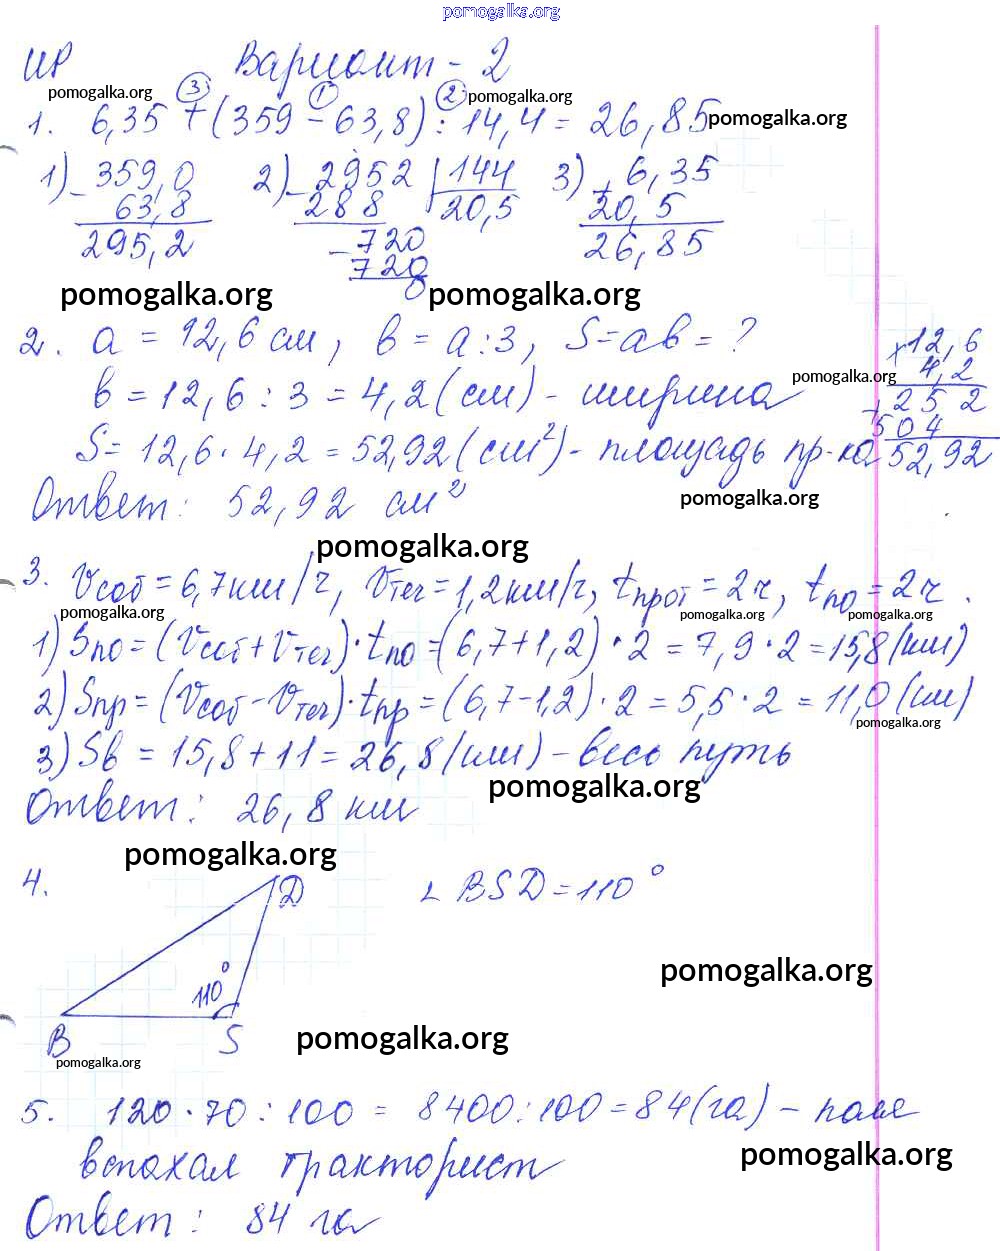 pomogalka.org
ИР Вариант - 2
pomogalka.org ③ ① ② pomogalka.org
1. 6,35 + (359 - 63,8) : 14,4 = 26,85 pomogalka.org
1) - 359,0 2) - 2952 | 144 3) + 6,35
63,8 288 20,5 20,5
295,2 - 720 26,85
720
0
pomogalka.org pomogalka.org
2. a = 12,6 см, в = а : 3, S = ав = ?
× 12,6
pomogalka.org 4,2
в = 12,6 : 3 = 4,2 (см) - ширина + 252
504
S = 12,6 · 4,2 = 52,92 (см²) - площадь пр-ка 52,92
Ответ: 52,92 см² pomogalka.org
pomogalka.org
3. Vсоб = 6,7 км/ч, Vтеч = 1,2 км/ч, tпрот = 2ч, tпо = 2ч.
pomogalka.org pomogalka.org pomogalka.org
1) Sпо = (Vсоб + Vтеч) · tпо = (6,7 + 1,2) · 2 = 7,9 · 2 = 15,8 (км)
2) Sпр = (Vсоб - Vтеч) · tпр = (6,7 - 1,2) · 2 = 5,5 · 2 = 11,0 (км)
pomogalka.org
3) Sв = 15,8 + 11 = 26,8 (км) - весь путь
pomogalka.org
Ответ: 26,8 км
pomogalka.org
4. D ∠ BSD = 110°
pomogalka.org
110°
B S pomogalka.org
pomogalka.org
5. 120 · 70 : 100 = 8400 : 100 = 84 (га) - поле
вспахал тракторист pomogalka.org
Ответ: 84 га